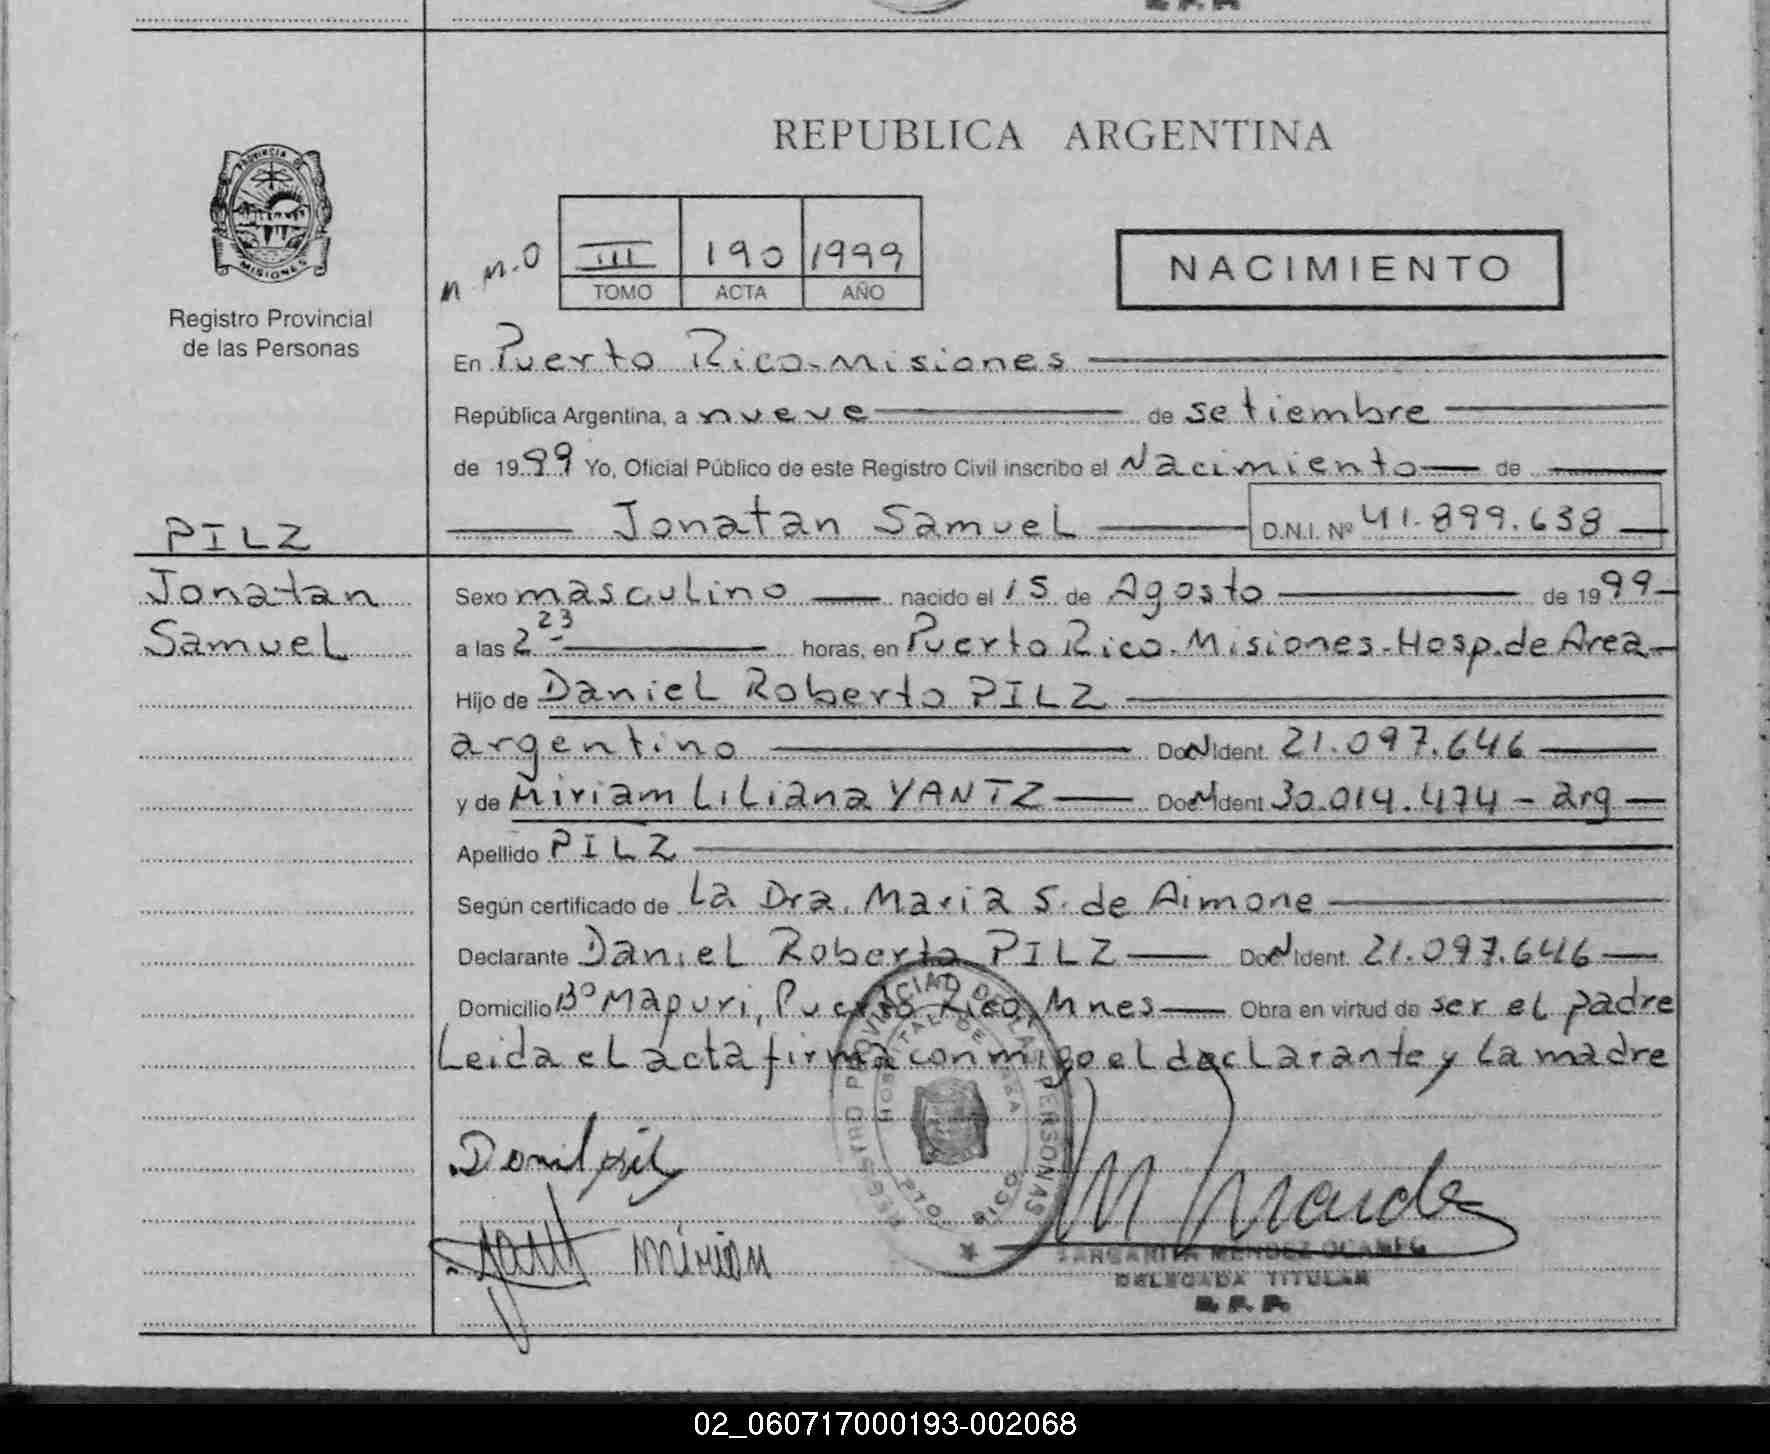 PROVINCIA DE
MISIONES
Registro Provincial
de las Personas
REPUBLICA ARGENTINA
n n.o III 190 1999
TOMO ACTA AÑO
NACIMIENTO
En Puerto Rico-Misiones
República Argentina, a nueve de setiembre
de 1999 Yo, Oficial Público de este Registro Civil inscribo el Nacimiento de
Jonatan Samuel D.N.I. Nº 41.899.638
PILZ
Jonatan
Samuel
Sexo masculino nacido el 15 de Agosto de 1999
a las 2 23 horas, en Puerto Rico-Misiones-Hosp.de Area
Hijo de Daniel Roberto PILZ
argentino Doc N Ident. 21.097.646
y de Miriam Liliana YANTZ Doc N Ident 30.014.474 - arg
Apellido PILZ
Según certificado de La Dra. Maria S. de Aimone
Declarante Daniel Roberto PILZ Doc N Ident. 21.097.646
Domicilio Bº Mapuri, Puerto Rico, Mnes Obra en virtud de ser el padre
Leida el acta firma conmigo el declarante y la madre
REGISTRO PROVINCIAL DE LAS PERSONAS
HOSPITAL DE
PTO RICO
Mirian
MARGARITA MENDEZ OCAMPO
DELEGADA TITULAR
R. P. P.
02_060717000193-002068